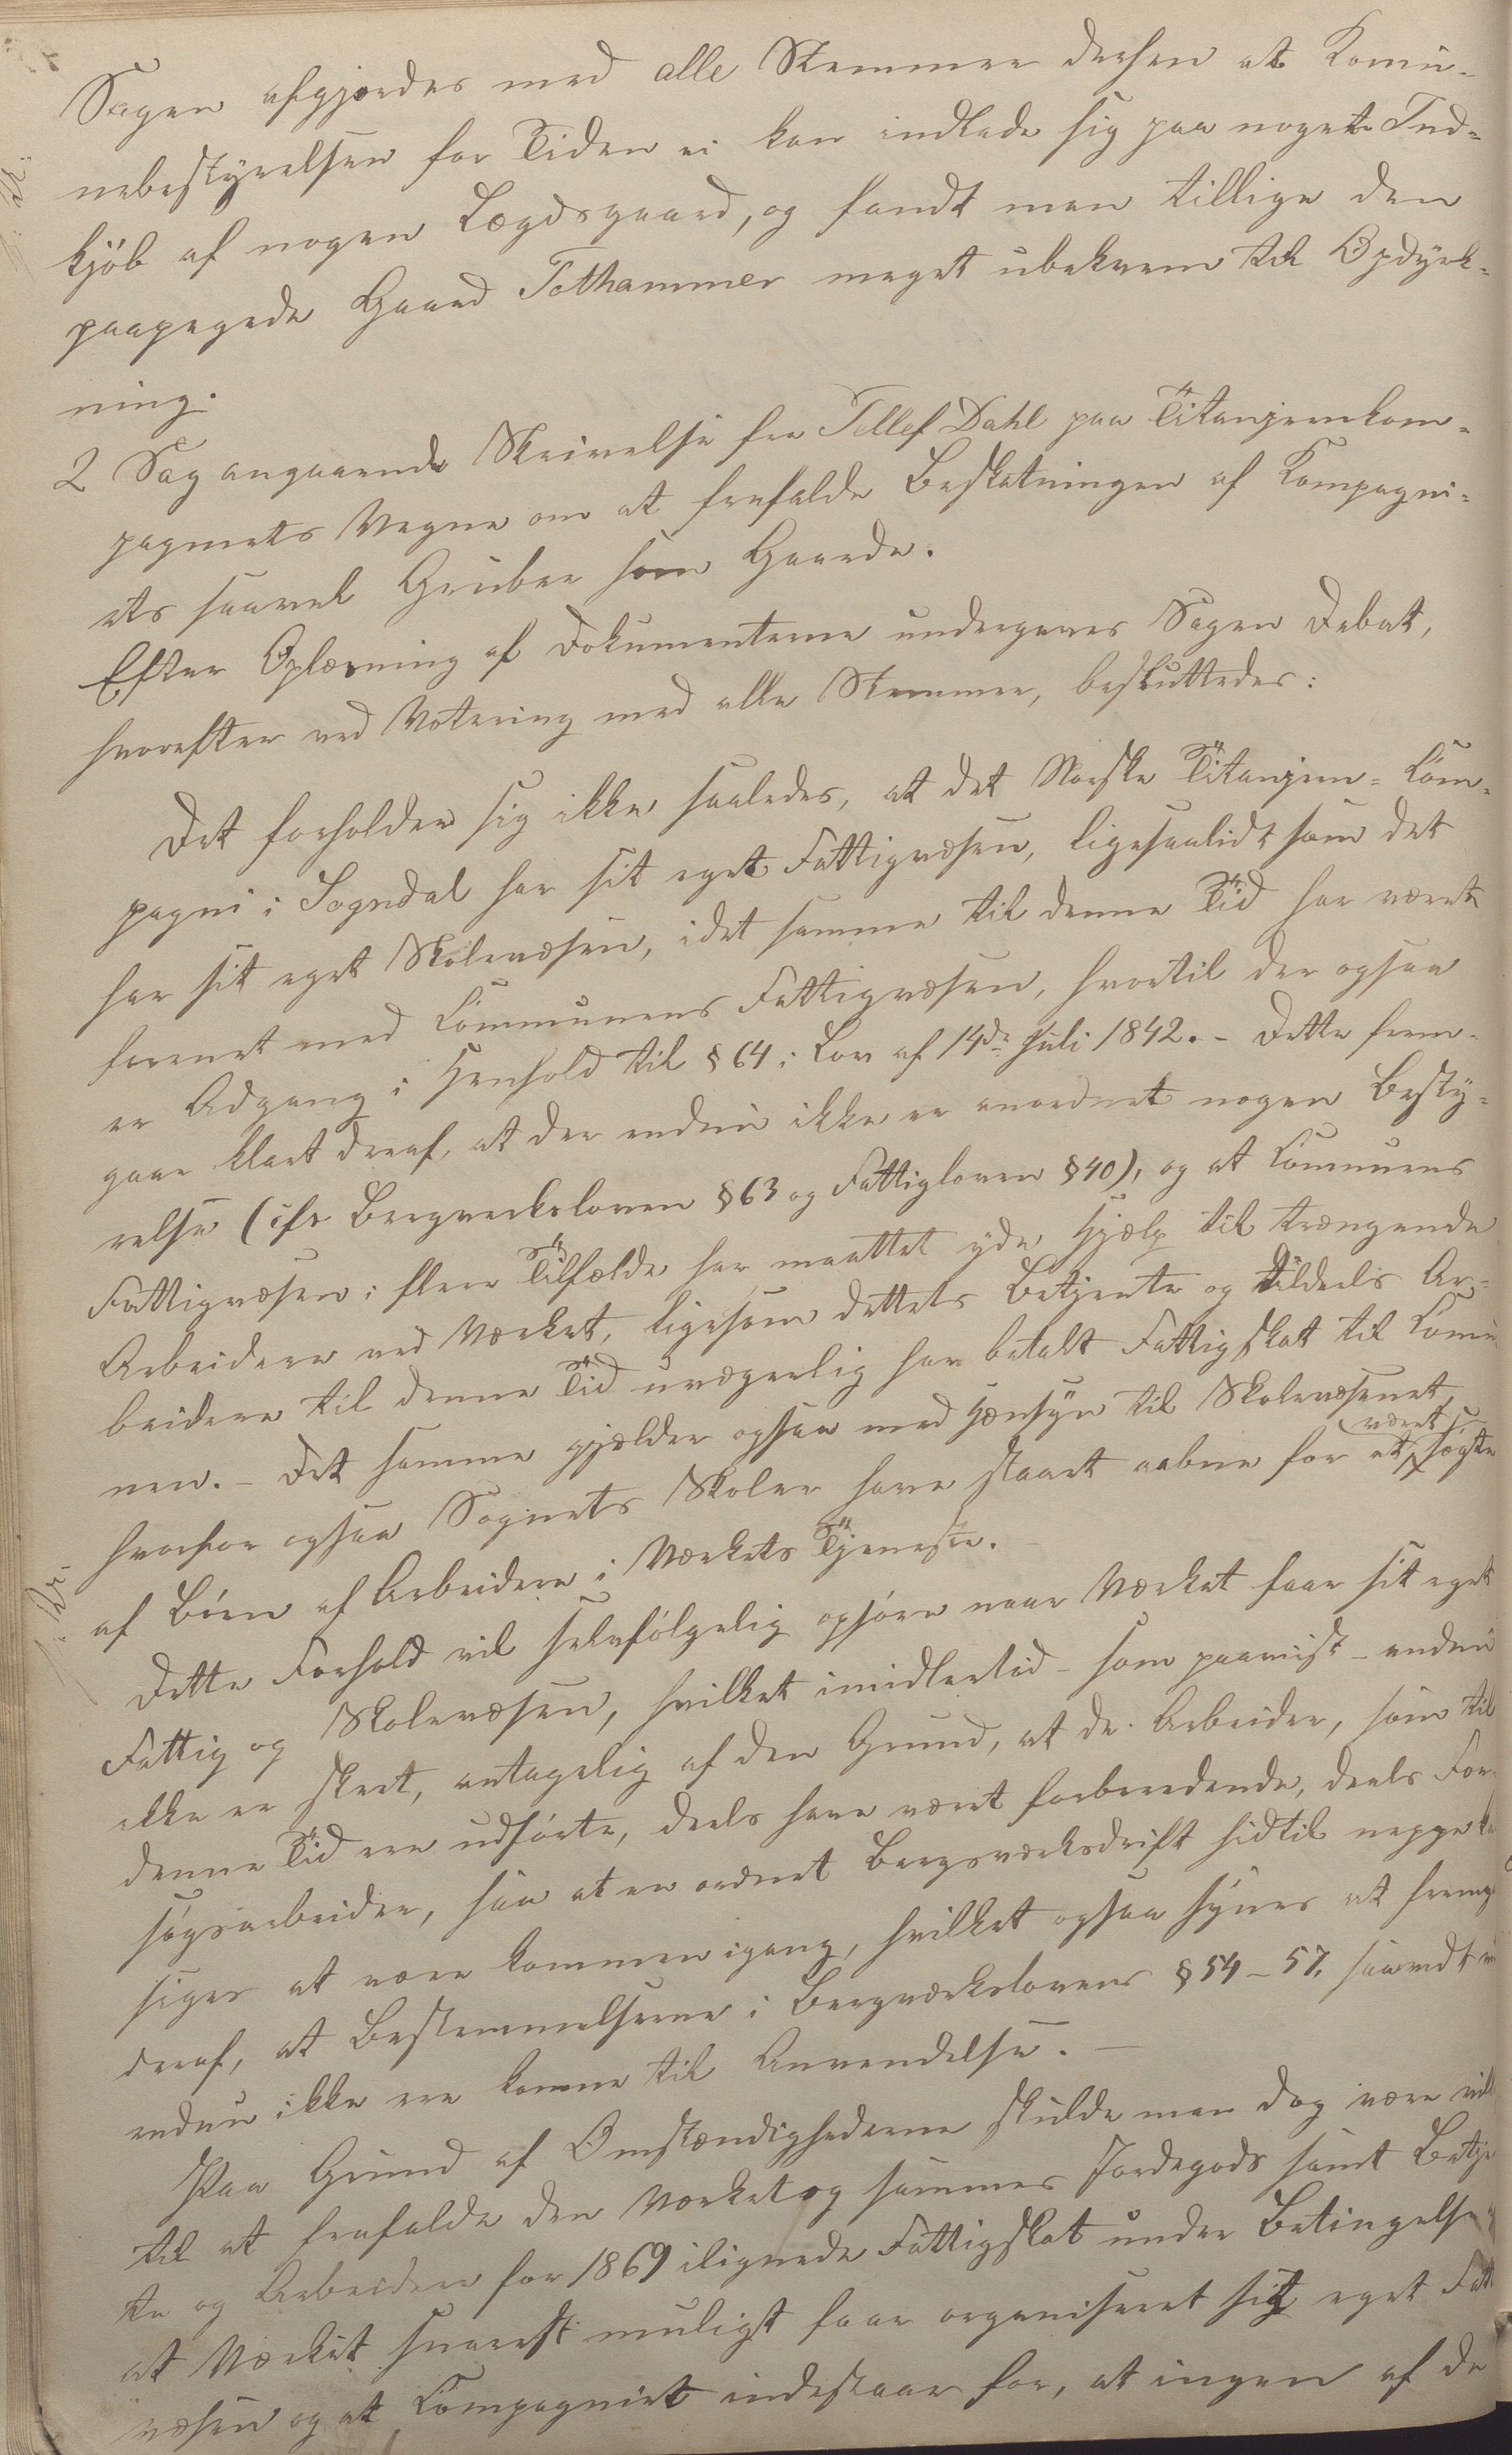 Sagen afgjordes med alle Stemmer derhen at Komu-
nebestyrelsen for Tiden ei kan indlade sig paa noget Ind-
kjöb af nogen Lægdsgaard, og fandt man tillige den
paapegede Gaard Tothammer meget ubekvem til Opdyrk-
ning.
2 Sag angaaende Skrivelse fra Tellef Dahl paa Titanjernkom-
pagniets Vegne om at frafalde Beskatningen af Kompagni-
ets saavel Gruber som Gaarde.
Efter Oplæsning af Dokumenterne undergaves Sagen Debat,
hvorefter ved Votering med alle Stemmer, besluttedes:
Det forholder sig ikke saaledes, at det Norske Titanjern-Com-
pagni i Sogndal har sit eget Fattigvæsen, ligesaalidt som det
har sit eget Skolevæsen, idet samme til denne Tid har været
forenet med Communens Fattigvæsen, hvortil der ogsaa
er Adgang i Henhold til § 64 i Lov af 14de Juli 1842. - Dette frem-
gaar klart deraf, at der endnu ikke er anordnet nogen Besty-
relse (cfr Bergverksloven § 63 og Fattigloven § 40), og at Communens
Fattigvæsen i flere Tilfælde har maattet yde Hjælp til trængende
Arbeidere ved Værket, ligesom dettets Betjente og tildeels Ar-
beidere til denne Tid uvægerlig har betalt Fattigskat til Comu-
nen. - Det samme gjælder ogsaa med Hensyn til Skolevæsenet,
hvorfor ogsaa Sognets Skoler have staaet aabne for at været søgte
af Börn af Arbeidere i Værkets Tjeneste.
Dette Forhold vil selvfölgelig ophöre naar Værket faar sit eget
Fattig og Skolevæsen, hvilket imidlertid - som paavist - endnu
ikke er skeet, antagelig af den Grund, at de Arbeider, som til
denne Tid ere udförte, deels have været forberedende, deels For-
sögsarbeider, saa at en ordnet Bergværksdrift hidtil neppe ka
siges at være kommen igang, hvilket ogsaa synes at fremg
deraf, at Bestemmelserne i Bergværkslovens § 54 - 57, saavidt vi
endnu ikke ere komne til Anvendelse. -
Paa Grund af Omstændighederne skulde man dog være vill
til at frafalde den Værket og sammes Jordegods samt Betje
te og Arbeidere for 1869 ilignede Fattigskat under Betingelse
at Værket snarest muligt faar organiseret sit eget Fatt
væsen og at Compagniet indestaar for, at ingen af de